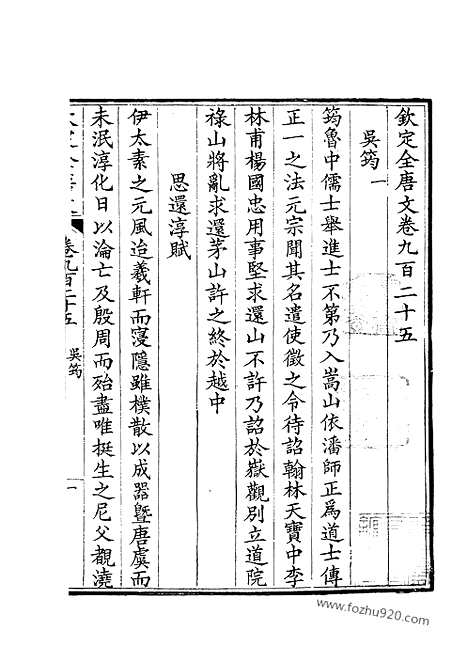 欽定全唐文卷九百二十五
吳筠一
筠魯中儒士舉進士不第乃入嵩山依潘師正爲道士傳
正一之法元宗聞其名遣使徵之令待詔翰林天寶中李
林甫楊國忠用事堅求還山不許乃詔於嶽觀別立道院
祿山將亂求還茅山許之終於越中
思還淳賦
伊太素之元風迨羲軒而寖隱雖樸散以成器曁唐虞而
未泯淳化日以淪亡及殷周而殆盡唯挺生之尼父覩澆
卷九百二十五 吳筠 一
www.fozhu920.com